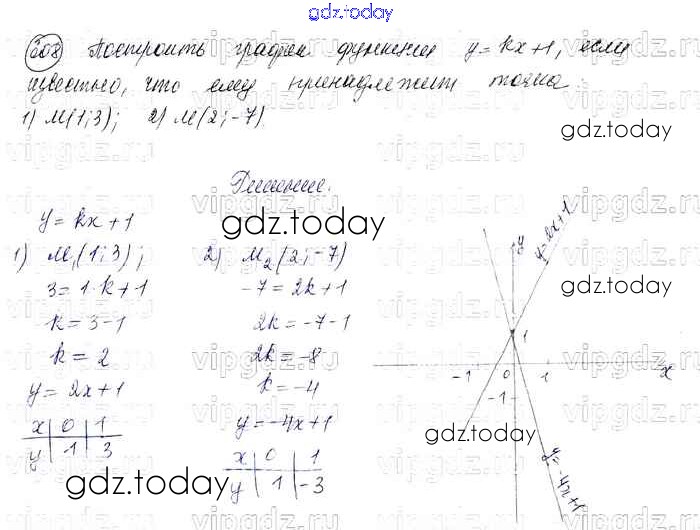 gdz.today
208 Построить график функции y = kx+1, если
известно, что ему принадлежит точка
1) M(1;3); 2) M(2;-7)
gdz.today
Решение.
y = kx+1
gdz.today
1) M₁(1;3);
3 = 1·k+1
k = 3-1
k = 2
y = 2x+1
x 0 1
y 1 3
2) M₂(2;-7)
-7 = 2k+1
2k = -7-1
2k = -8
k = -4
y = -4x+1
x 0 1
y 1 -3
y
y = 2x+1
gdz.today
1
-1 0 1 x
-1
gdz.today
y = -4x+1
gdz.today
vipgdz.ru